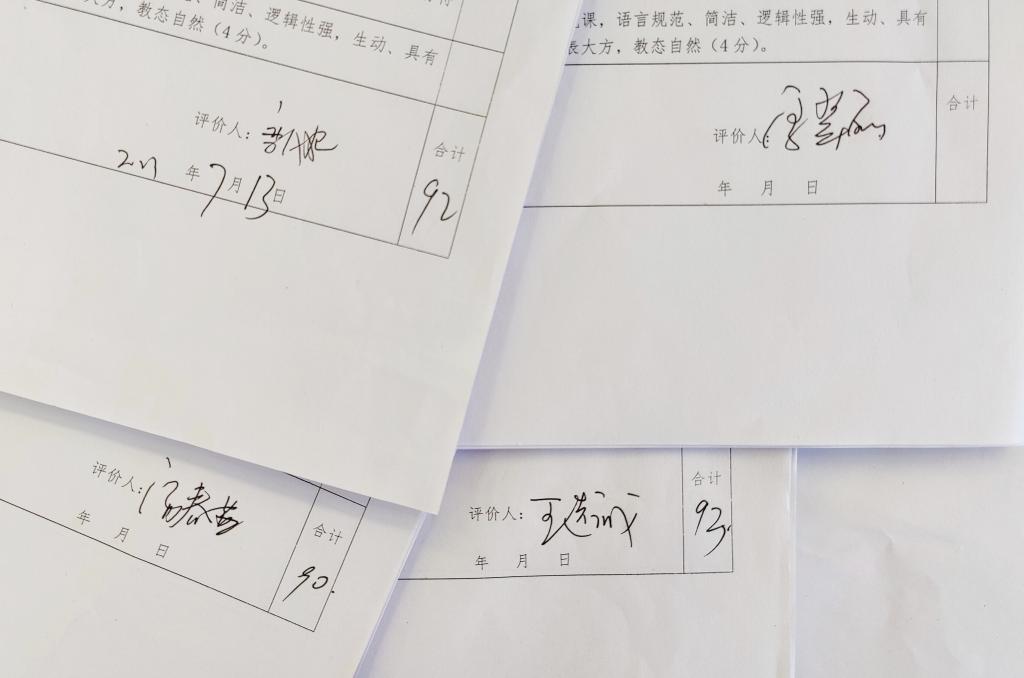 、简洁、逻辑性强，生动、具有
大方，教态自然（4分）。
评价人：
年7月13日
合计
92
课，语言规范、简洁、逻辑性强，生动、具有
大方，教态自然（4分）。
评价人：
年 月 日
合计
评价人：
年 月 日
合计
90.
评价人：王选诚
年 月 日
合计
93.